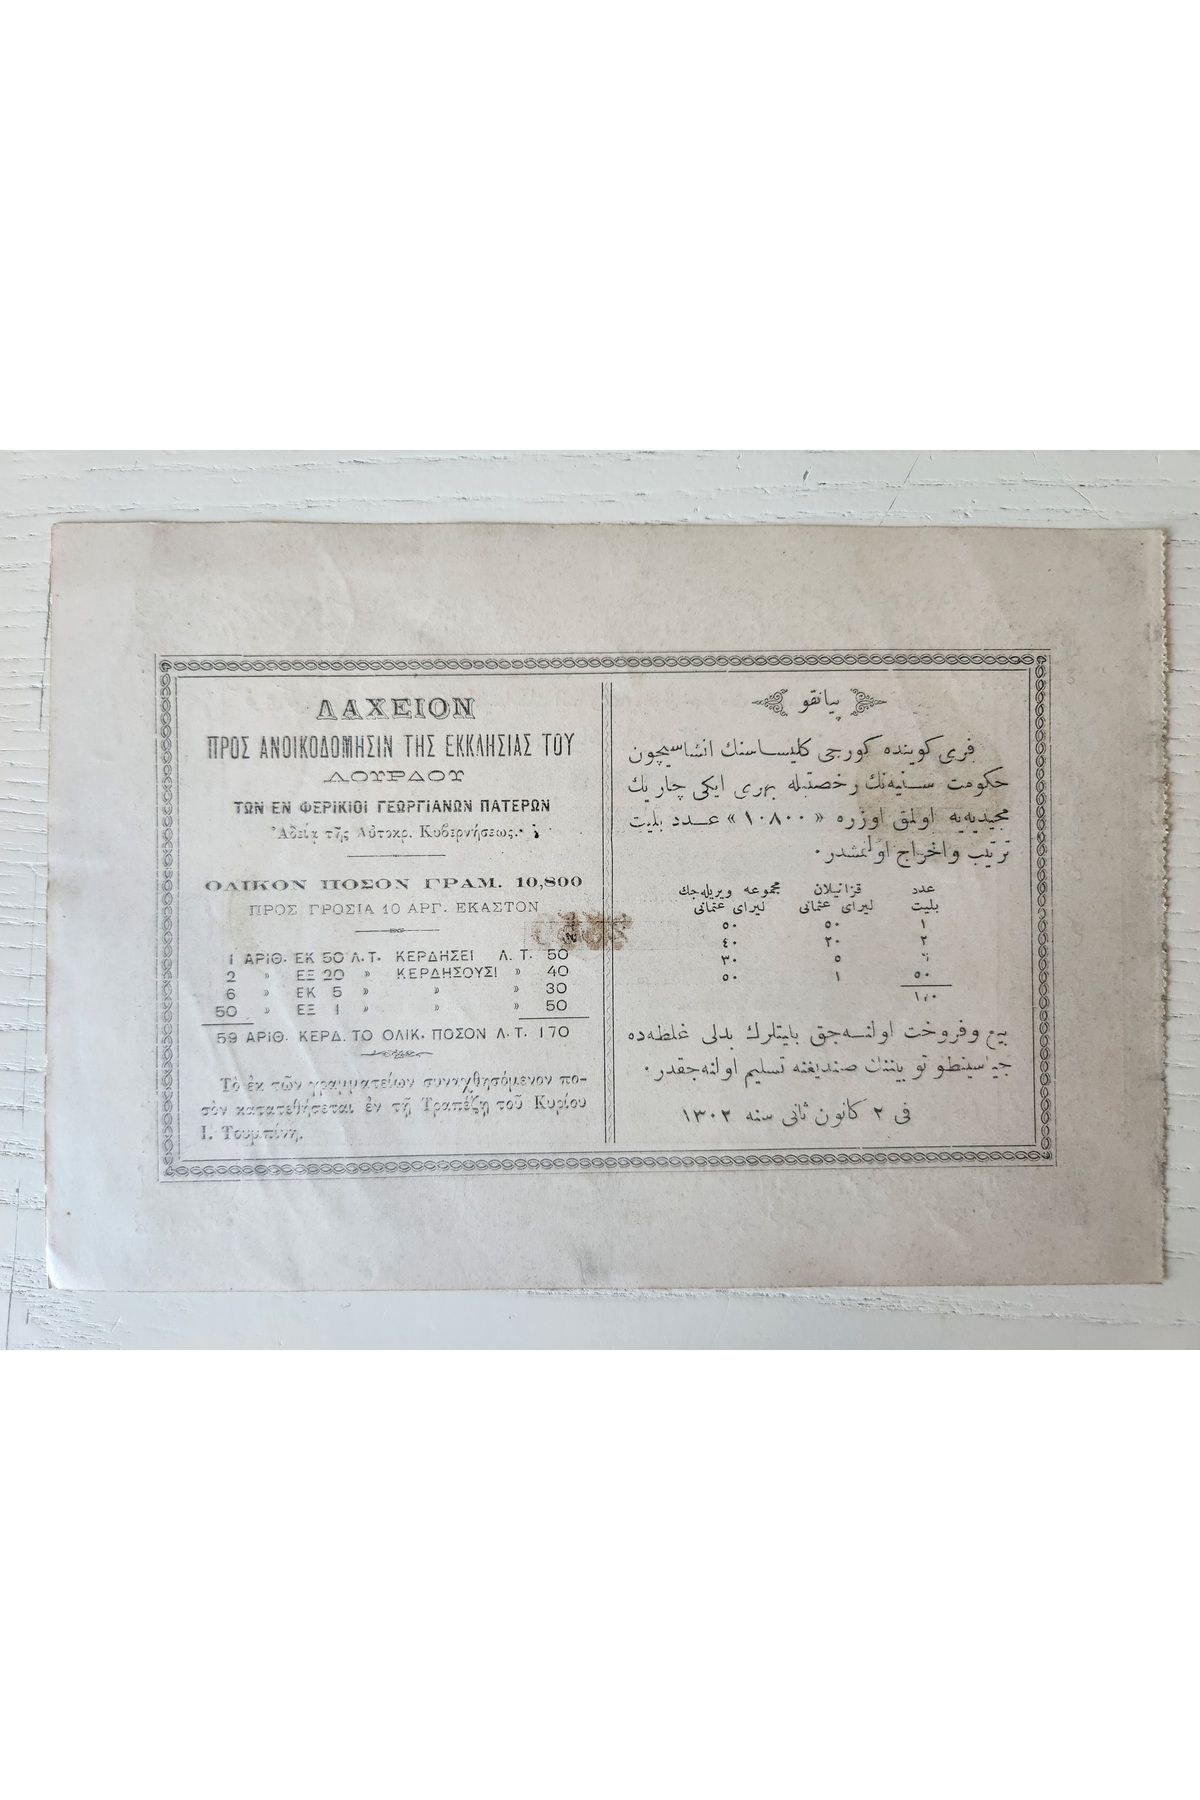 ΛΑΧΕΙΟΝ
ΠΡΟΣ ΑΝΟΙΚΟΔΟΜΗΣΙΝ ΤΗΣ ΕΚΚΛΗΣΙΑΣ ΤΟΥ
ΛΟΥΡΔΟΥ
ΤΩΝ ΕΝ ΦΕΡΙΚΙΟΙ ΓΕΩΡΓΙΑΝΩΝ ΠΑΤΕΡΩΝ
Ἀδείᾳ τῆς Αὐτοκρ. Κυβερνήσεως.
ΟΛΙΚΟΝ ΠΟΣΟΝ ΓΡΑΜ. 10,800
ΠΡΟΣ ΓΡΟΣΙΑ 10 ΑΡΓ. ΕΚΑΣΤΟΝ
1 ΑΡΙΘ. ΕΚ 50 Λ.Τ. ΚΕΡΔΗΣΕΙ Λ. Τ. 50
2 » ΕΞ 20 » ΚΕΡΔΗΣΟΥΣΙ » 40
6 » ΕΚ 5 » » » 30
50 » ΕΞ 1 » » » 50
59 ΑΡΙΘ. ΚΕΡΔ. ΤΟ ΟΛΙΚ. ΠΟΣΟΝ Λ. Τ. 170
Τὸ ἐκ τῶν γραμματείων συναχθησόμενον πο-
σὸν κατατεθήσεται ἐν τῇ Τραπέζῃ τοῦ Κυρίου
Ι. Τουμπίνη.
پیانقو
فری کوینده کورجی کلیساسنك انشاسیچون
حکومت سنیه‌نك رخصتیله بهری ایکی چاریك
مجیدیه‌یه اولمق اوزره « ١٠٨٠٠ » عدد بلیت
ترتیب واخراج اولنمشدر.
عدد قزانیلان مجموعه ویریله‌جك
بلیت لیرای عثمانی لیرای عثمانی
١ ٥٠ ٥٠
٢ ٢٠ ٤٠
٥ ٣٠
٥٠ ١ ٥٠
بیع وفروخت اولنه‌جق بلیتلرك بدلی غلطه‌ده
صندیغنه تسلیم اولنه‌جقدر.
فی ٢ کانون ثانی سنه ١٣٠٢